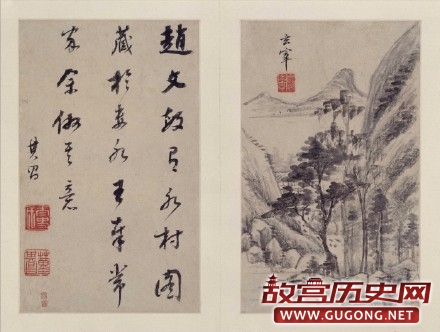 玄宰
趙文敏有水村圖
藏於婁水王奉常
家余倣其意
其昌
故宫历史网
WWW.GUGONG.NET